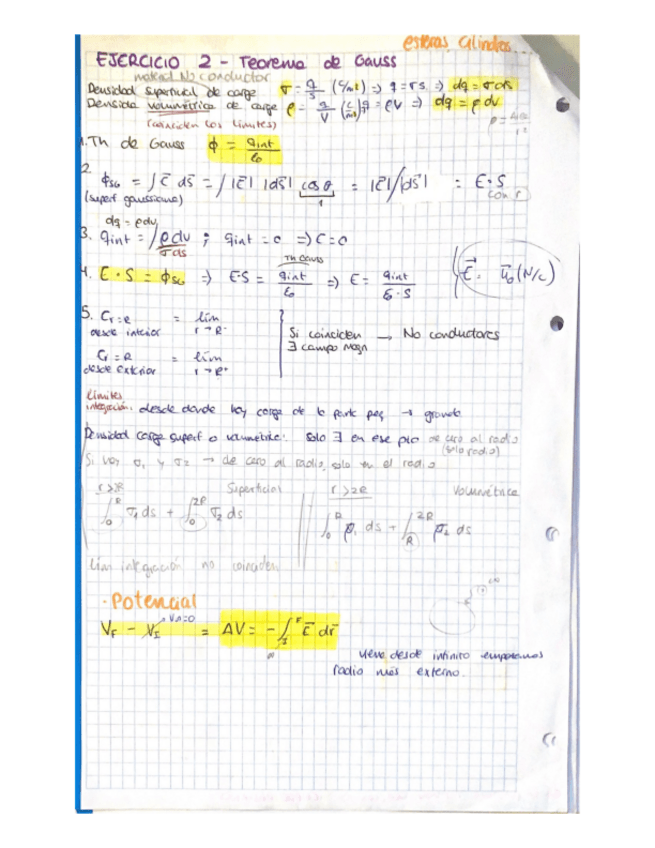 esferas, cilindros
EJERCICIO 2 - Teorema de Gauss
material No conductor
Densidad superficial de carge σ = q/S (C/m²) => q = σS => dq = σ ds
Densida volumétrica de carge ρ = q/V => q = ρV => dq = ρ dv
(coinciden los límites)
1. Th de Gauss ϕ = qint/ε0
2. ϕSG = ∫ E⃗ ds⃗ = ∫ |E⃗| |ds⃗| cos θ = |E⃗| ∫ |ds⃗| = E · S
(superf gaussiana) 1 con r
dq = ρdv
3. qint = ∫ ρdv ; qint = 0 => E = 0
σ ds
4. E · S = ϕSG => E·S = qint/ε0 => E = qint/ε0·S
Th Gauss
E⃗ = u⃗ (N/C)
5. Er=R = lím
desde interior r → R⁻
Er=R = lím
desde exterior r → R⁺
Si coinciden → No conductores
∃ campo
límites
integración: desde donde hay carga de la parte peq → grande
Densidad carga superf o volumétrica: solo ∃ en ese pto de cero al radio
(solo radio)
Si vas σ1 y σ2 → de cero al radio, solo en el radio
r > 2R Superficial r > 2R Volumétrica
∫0^R σ1 ds + ∫0^2R σ2 ds ∫0^R ρ1 ds + ∫R^2R ρ2 ds
Lím integración no coinciden
· Potencial
VF - VI = ΔV = - ∫ E⃗ dr⃗
∞
viene desde infinito empezamos
radio más externo.